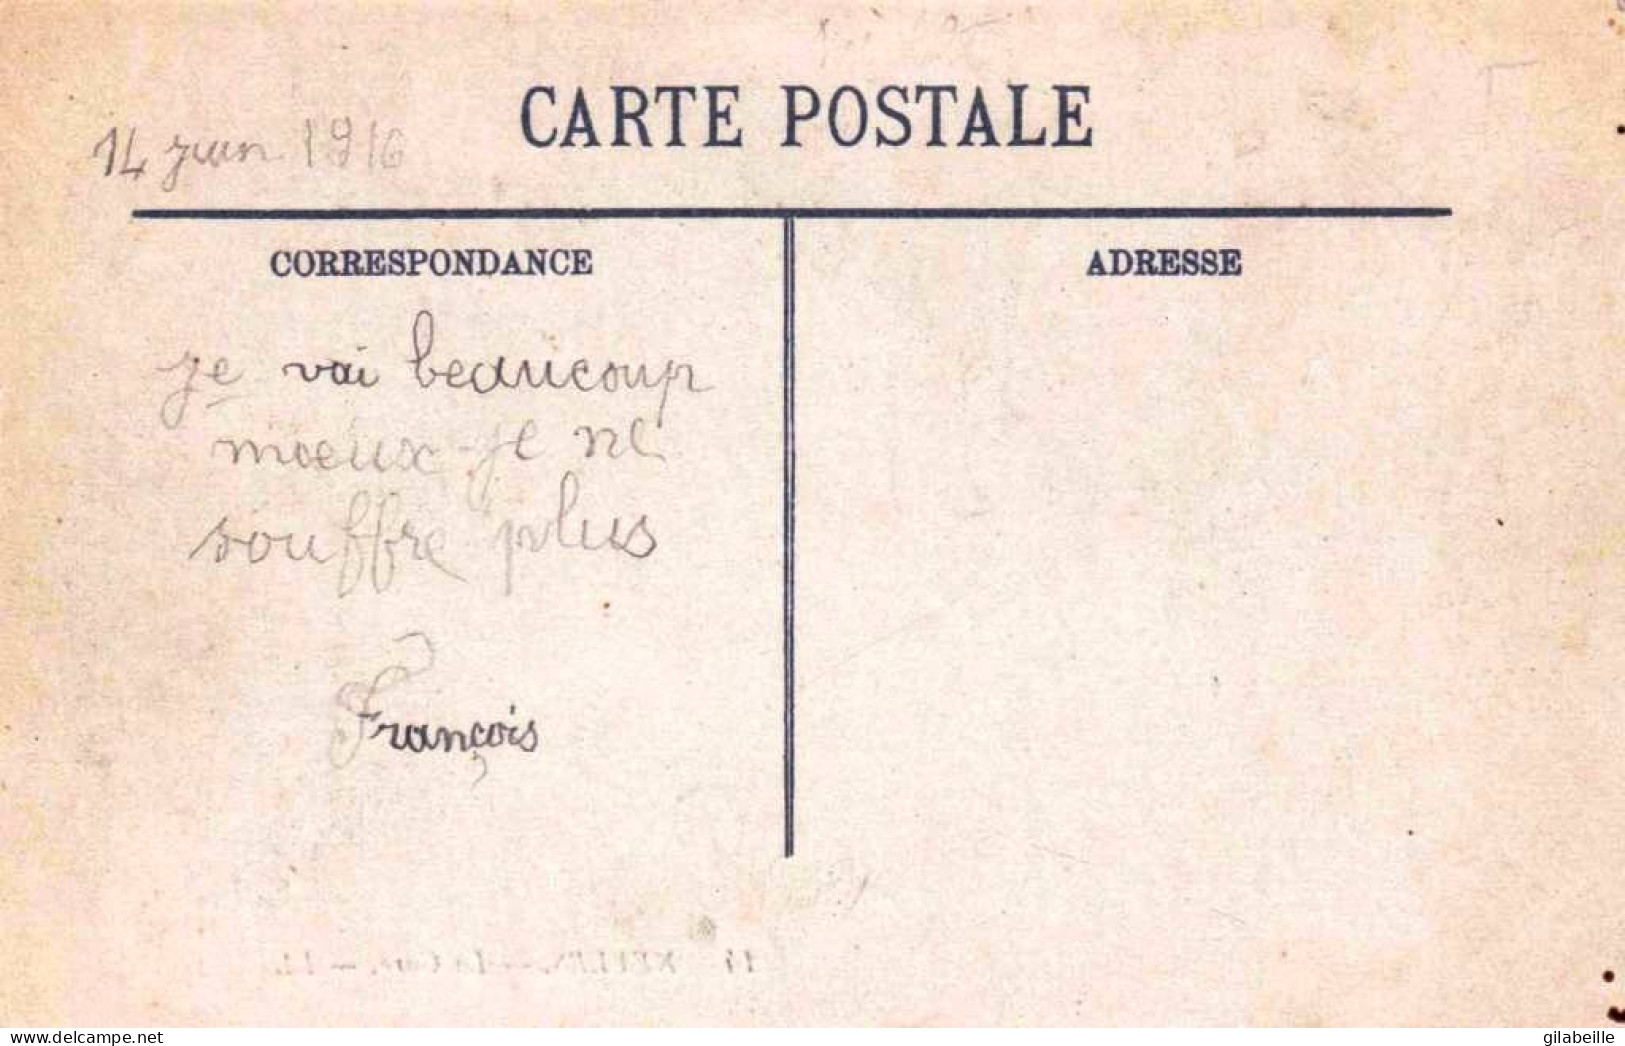 CARTE POSTALE
14 juin 1916
CORRESPONDANCE
ADRESSE
je vai beaucoup
moeux je ne
souffre plus
François
www.delcampe.net
gilabeille